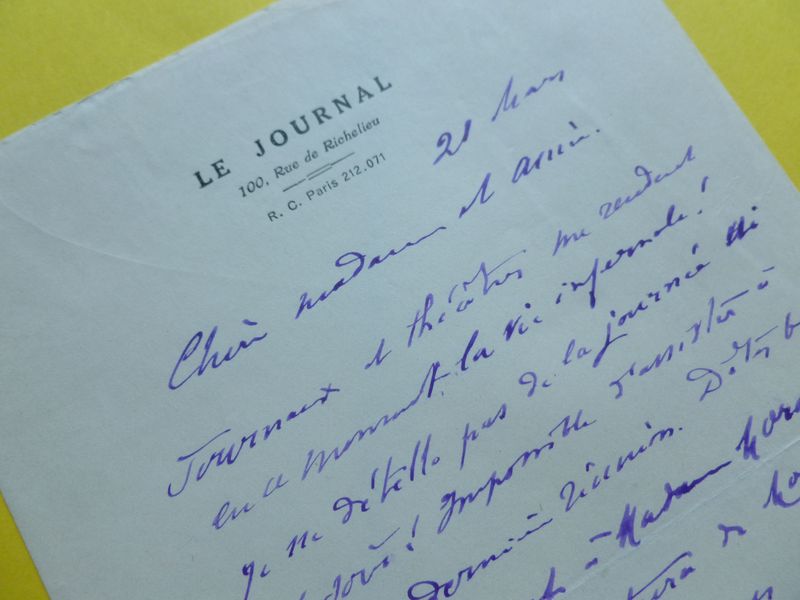 LE JOURNAL
100, Rue de Richelieu
R. C. Paris 212.071
21 Mars
Chère Madame et amie.
Journaux et théâtres me rendent
en ce moment la vie infernale!
Je ne dételle pas de la journée ni
! Impossible d'assister à
dernière réunion. Dites
à Madame
de